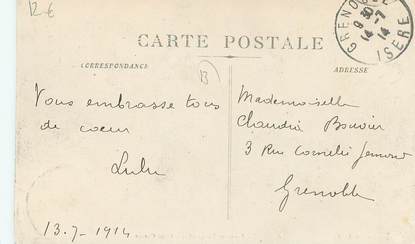 12 €
GRENOBLE
9 30
14-7
14
ISERE
CARTE POSTALE
CORRESPONDANCE
B
ADRESSE
Vous embrasse tous
de coeur
Lulu
13.7-1914
Mademoiselle
Claudia Bouvier
3 Rue Cornélie
Grenoble